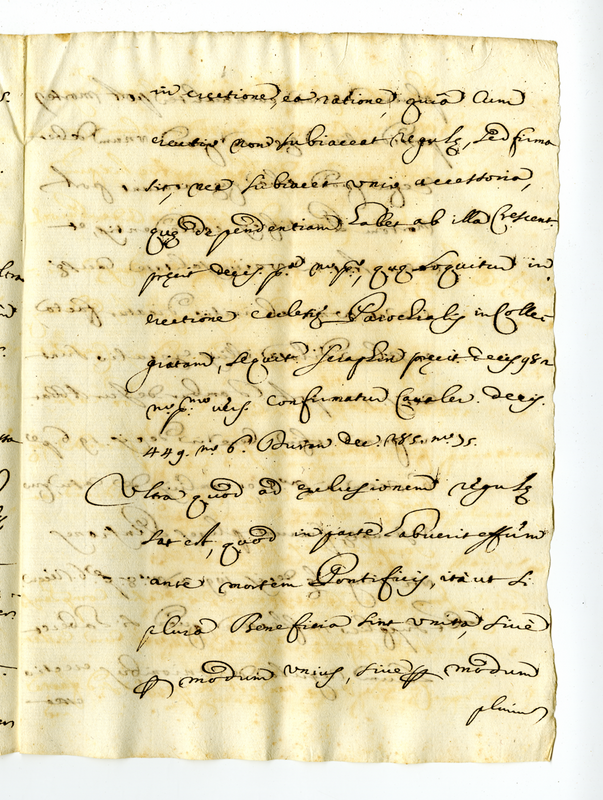 in erectione, ea ratione, quia cum
erectio non subiaceat regulę, sed firma
sit, nec subiacet unio accessoria,
quę dependentiam habet ab illa Crescent.
decis. pᵃ nᵒ pᵒ, quę loquitur in
erectione ecclesię Parochialis in Colle-
giatam, sequit. Seraphin pręcit. decis 982
nᵒ pᵒ vers. confirmatur Cavaler. decis.
449. nᵒ 6. Buran dec. 185. nᵒ 15.
Ultra quod ad exclusionem regulę
sat est, quod in parte habuerit effūm
ante mortem Pontificis, ità ut si
plura Beneficia sint unita, sivè
ꝑ modum unius, sivè ꝑ modum
plurium